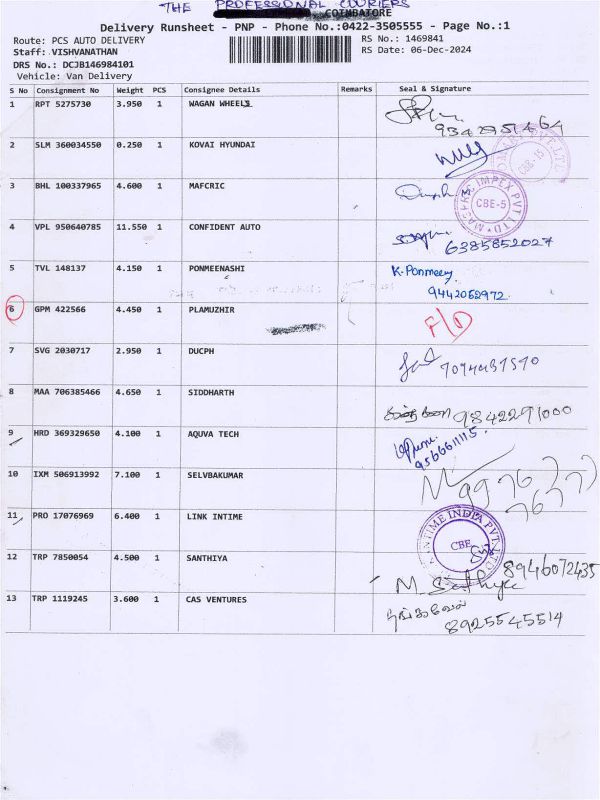 THE PROFESSIONAL COURIERS
COIMBATORE
Delivery Runsheet - PNP - Phone No.:0422-3505555 - Page No.:1
Route: PCS AUTO DELIVERY RS No.: 1469841
Staff: VISHVANATHAN RS Date: 06-Dec-2024
DRS No.: DCJB146984101
Vehicle: Van Delivery
S No Consignment No Weight PCS Consignee Details Remarks Seal & Signature
1 RPT 5275730 3.950 1 WAGAN WHEELS
2 SLM 360034550 0.250 1 KOVAI HYUNDAI
3 BHL 100337965 4.600 1 MAFCRIC
IMPEX PVT LTD CBE-5
4 VPL 950640785 11.550 1 CONFIDENT AUTO 6385852027
5 TVL 148137 4.150 1 PONMEENASHI K. Ponmeey
9442052972
6 GPM 422566 4.450 1 PLAMUZHIR F/D
7 SVG 2030717 2.950 1 DUCPH
8 MAA 706385466 4.650 1 SIDDHARTH 9842291000
9 HRD 369329650 4.100 1 AQUVA TECH 9566611115
10 IXM 506913992 7.100 1 SELVBAKUMAR
11 PRO 17076969 6.400 1 LINK INTIME
INTIME INDIA PVT LTD CBE
12 TRP 7850054 4.500 1 SANTHIYA 8946072435
13 TRP 1119245 3.600 1 CAS VENTURES தங்கவேல்
8925545514